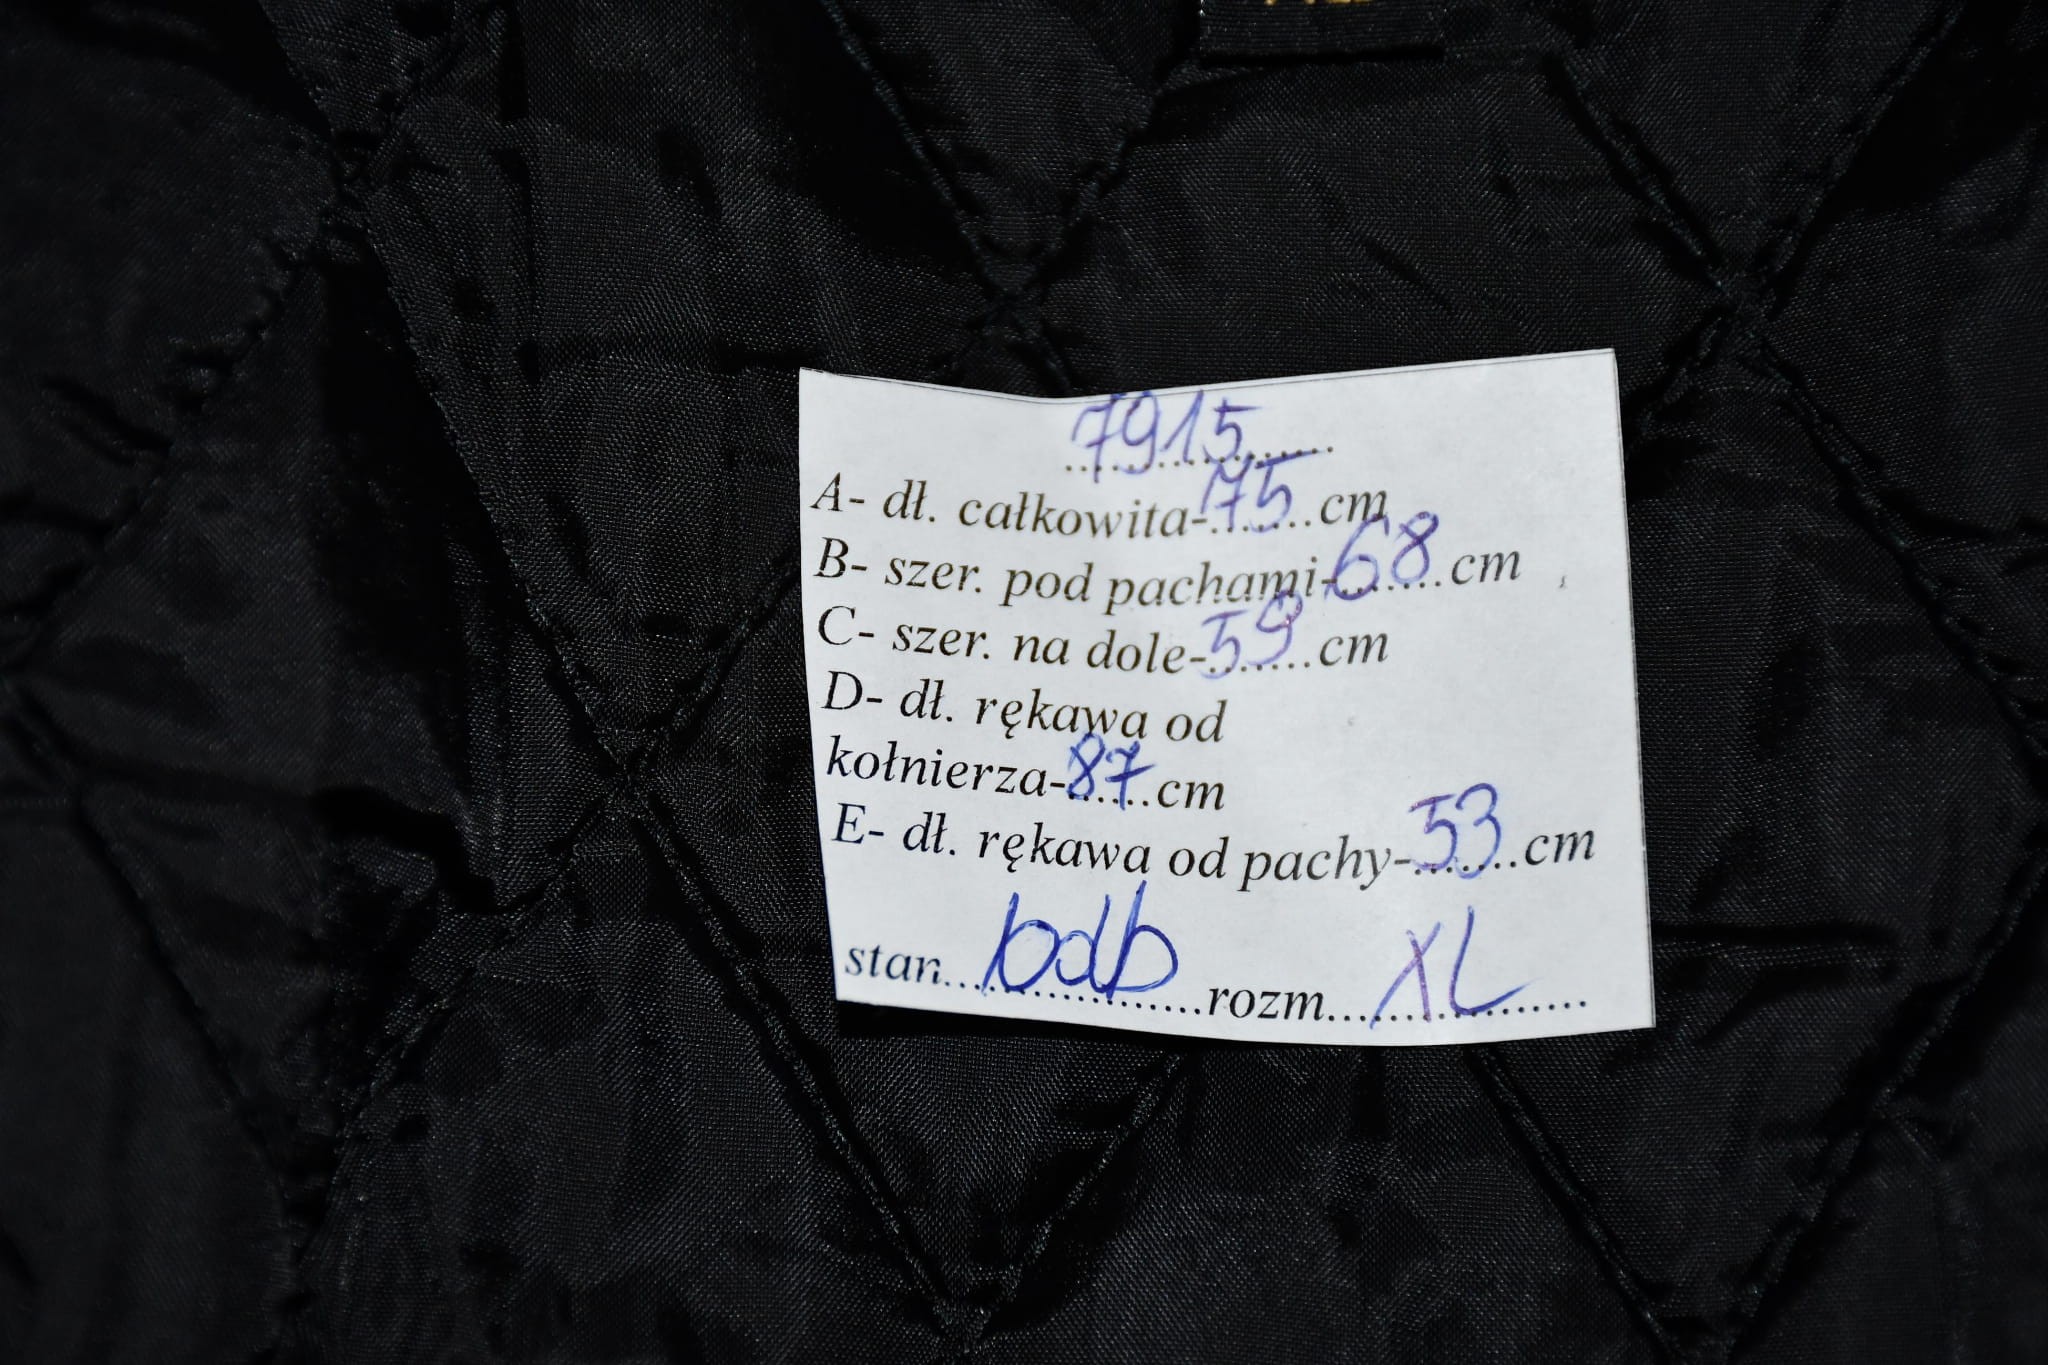 7915
A- dł. całkowita-75cm
B- szer. pod pachami-68cm
C- szer. na dole-59cm
D- dł. rękawa od
kołnierza-87cm
E- dł. rękawa od pachy-53cm
stan...bdb...rozm...XL...